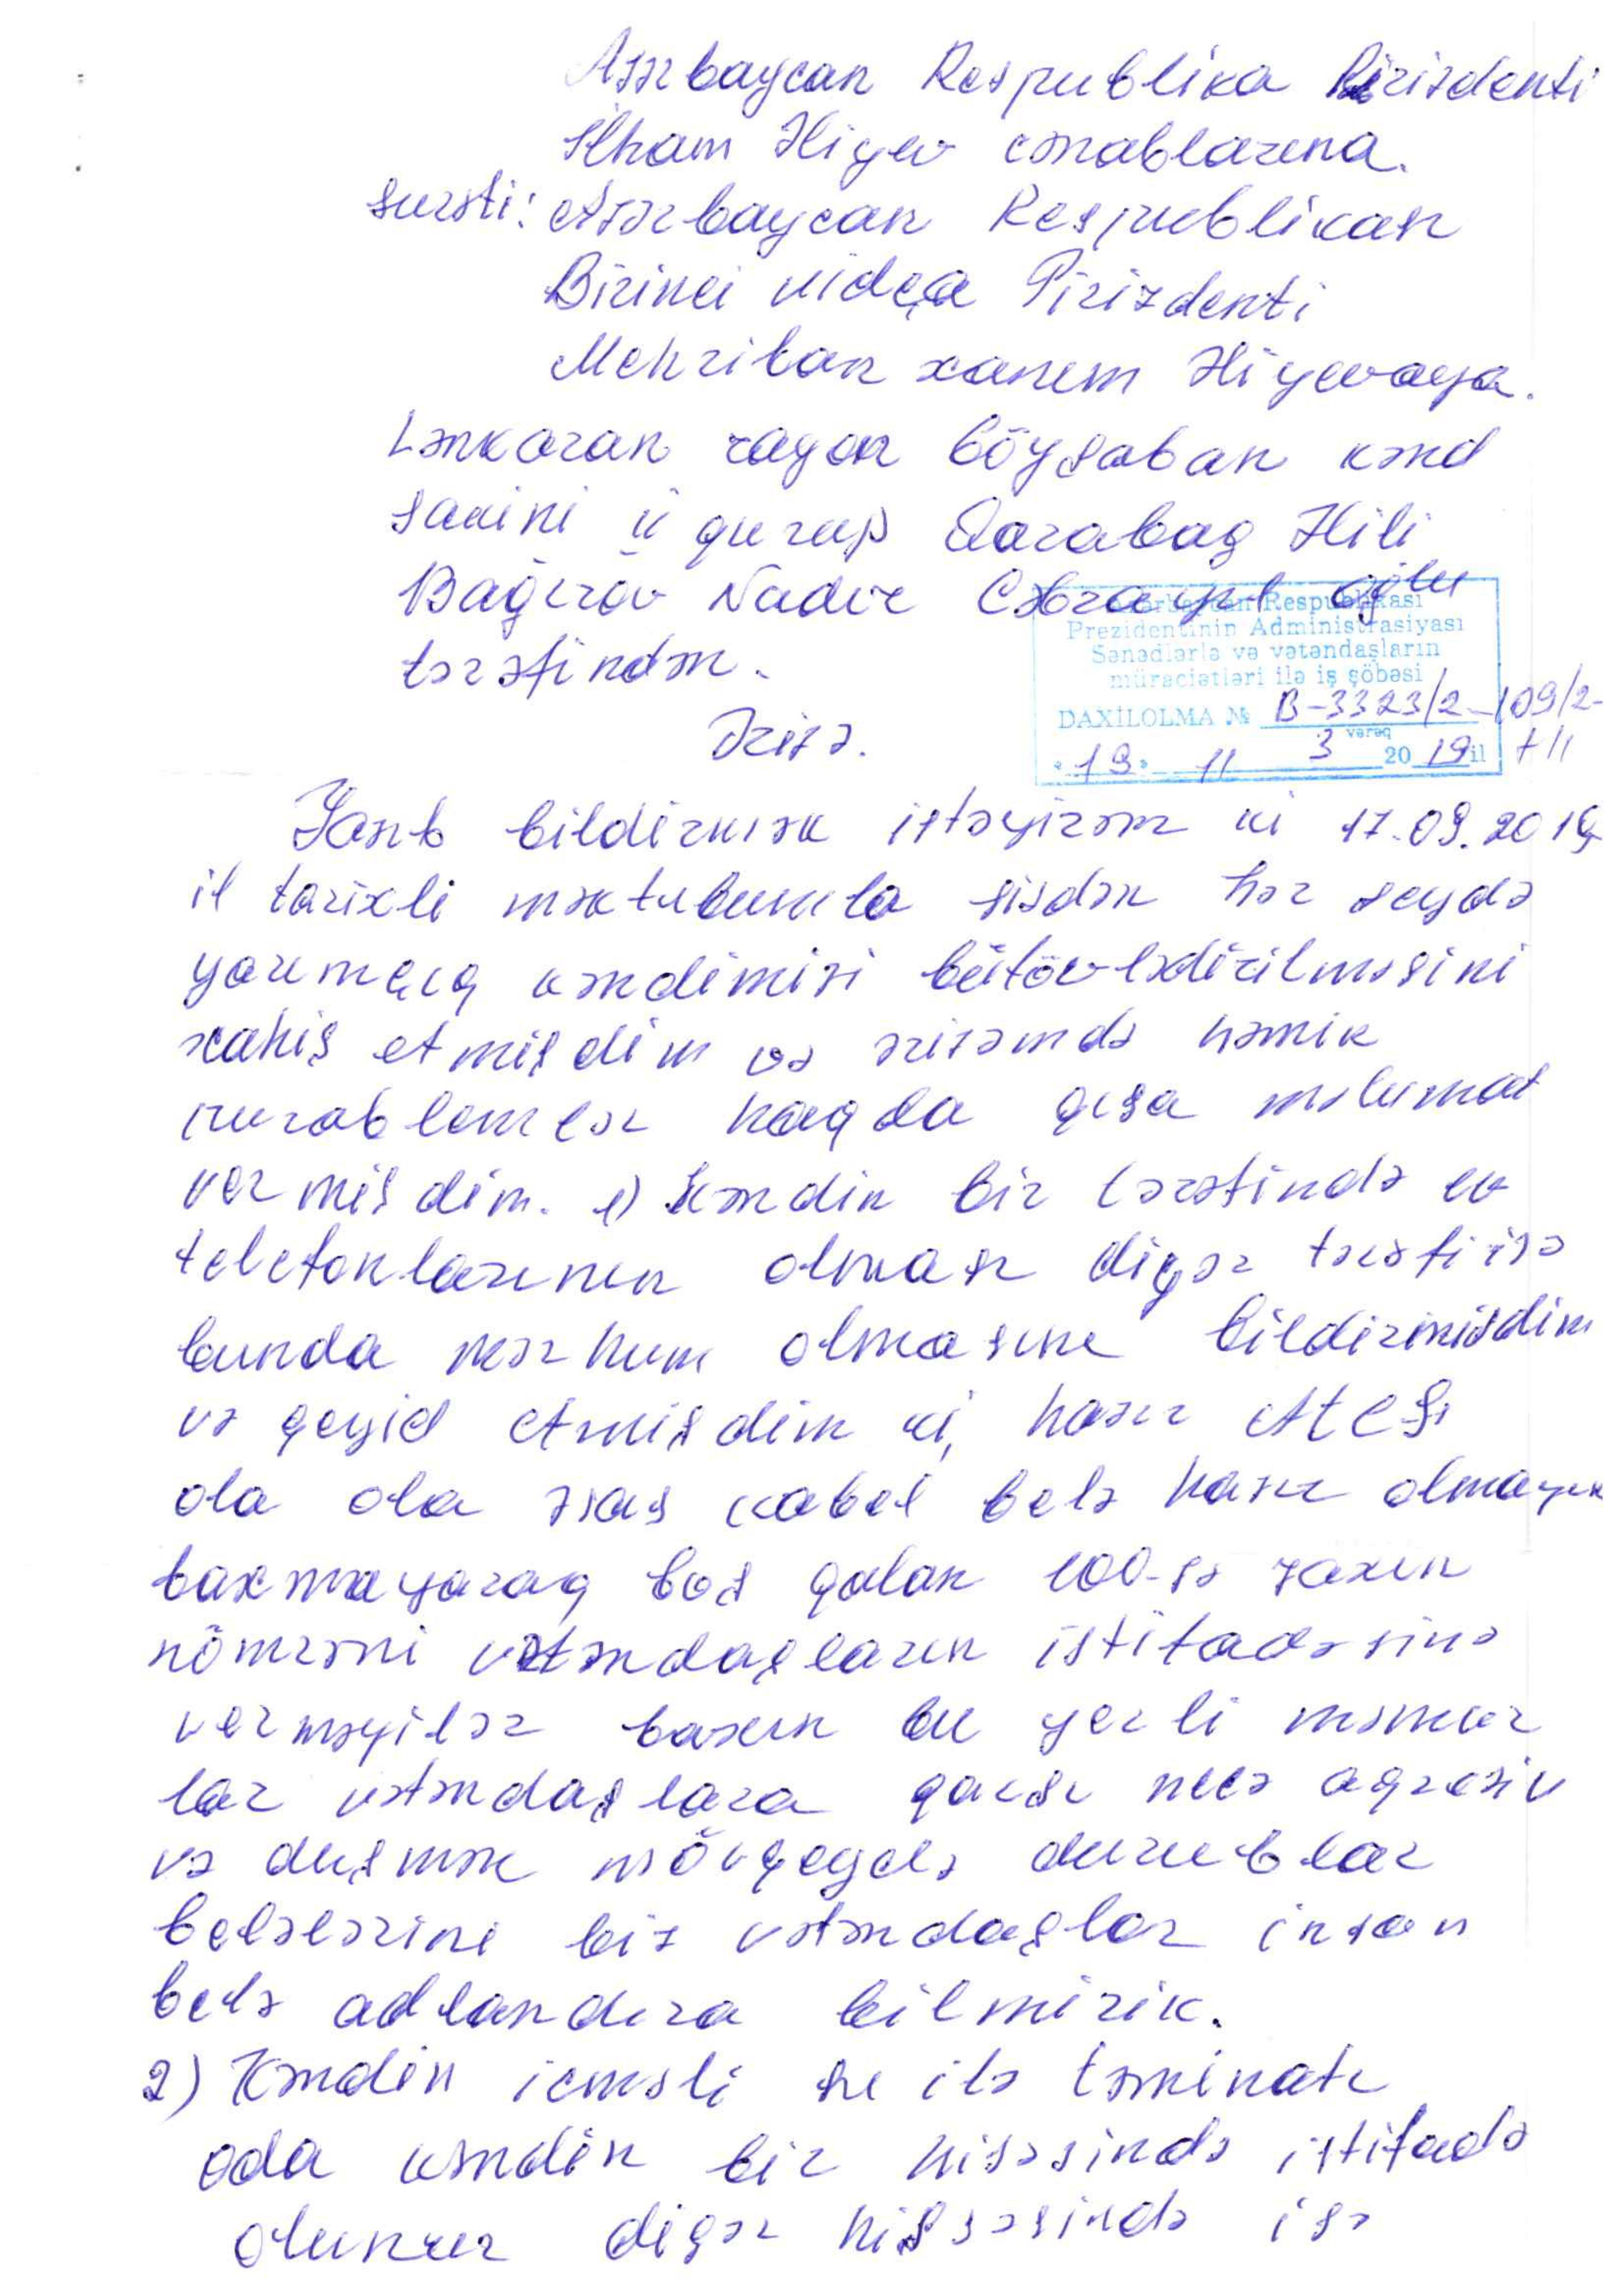 Azərbaycan Respublika Pirizdenti
İlham Əliyev cənablarına.
surəti: Azərbaycan Respublikası
Birinci vidçe Pirizdenti
Mehriban xanım Əliyevaya.
Lənkaran rayon Göyşaban kənd
sakini II qurup Qarabağ Əlili
Bağırov Nadir Cəbrayıl oğlu
tərəfindən.
Azərbaycan Respublikası
Prezidentinin Administrasiyası
Sənədlərlə və vətəndaşların
müraciətləri ilə iş şöbəsi
DAXİLOLMA № B-3323/2-109/2-
3 vərəq
"19" 11 2019 il +11
Ərizə.
Yazıb bildirmək istəyirəm ki 17.09.2019
il tarixli məktubumla sizdən hər şeydə
yarımçıq kəndimizi bütövlədirilməsini
xahiş etmişdim və ərizəmdə həmin
purablemlər haqda qısa məlumat
vermişdim. 1) Kəndin bir tərəfində ev
telefonlarının olması digər tərəfi isə
bunda mərhum olmasını bildirmişdim
və qeyid etmişdim ki, hazır ATCSı
ola ola əsas kabel belə hazır olmayın
baxmayaraq boş qalan 100-sə yaxın
nömrəni vətəndaşların istifadəsinə
verməyilər baxın bu yerli məmur
lar vətəndaşlara qarşı necə aqresiv
və duşmən mövqeyelə durublar
belələrini biz vətəndaşlar insan
belə adlandıra bilmirik.
2) Kəndin icməli su ilə təminatı
oda kəndin bir hisəsində istifadə
olunur digər hissəsində isə